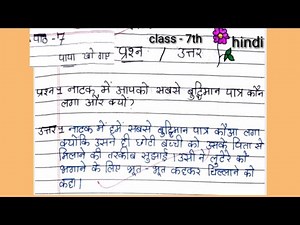 पाठ - 7
class - 7th
hindi
पापा खो गए
प्रश्न / उत्तर
प्रश्न 1 नाटक में आपको सबसे बुद्धिमान पात्र कौन
लगा और क्यों?
उत्तर 1 नाटक में हमें सबसे बुद्धिमान पात्र कौआ लगा
क्योंकि उसने ही छोटी बच्ची को उसके पिता से
मिलाने की तरकीब सुझाई। उसी ने लुटेरे को
भगाने के लिए भूत - भूत कहकर चिल्लाने को
कहा।